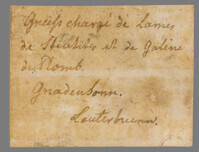 Gneiss chargé de Lames
de Stéatites et de Galène
de Plomb.
Gnadenbonn.
Lauterbrunn.